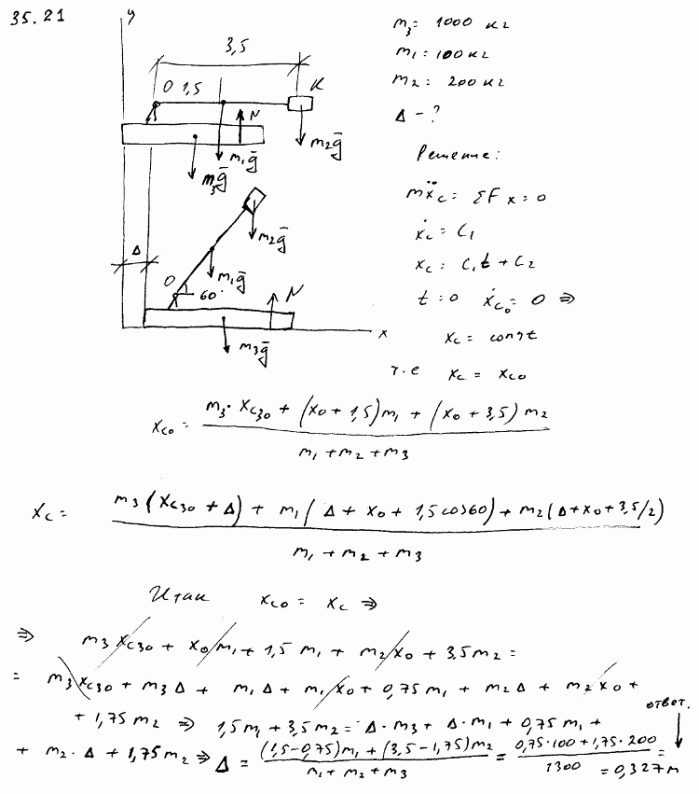 35.21
y
3,5
O 1,5
K
N
m₂g̅
m₁g̅
m₃g̅
m₂g̅
Δ
m₁g̅
O
60°
N
x
m₃g̅
m₃ = 1000 кг
m₁ = 100 кг
m₂ = 200 кг
Δ - ?
Решение:
mẍc = ΣFx = 0
ẋc = C₁
xc = C₁t + C₂
t = 0 ẋc₀ = 0 ⇒
xc = const
т.е xc = xc₀
xc₀ = (m₃·xc₃₀ + (x₀ + 1,5)m₁ + (x₀ + 3,5)m₂) / (m₁ + m₂ + m₃)
xc = (m₃(xc₃₀ + Δ) + m₁(Δ + x₀ + 1,5cos60) + m₂(Δ + x₀ + 3,5/2)) / (m₁ + m₂ + m₃)
Итак xc₀ = xc ⇒
⇒ m₃xc₃₀ + x₀m₁ + 1,5m₁ + m₂x₀ + 3,5m₂ =
= m₃xc₃₀ + m₃Δ + m₁Δ + m₁x₀ + 0,75m₁ + m₂Δ + m₂x₀ +
ответ.
+ 1,75m₂ ⇒ 1,5m₁ + 3,5m₂ = Δ·m₃ + Δ·m₁ + 0,75m₁ +
+ m₂·Δ + 1,75m₂ ⇒ Δ = ((1,5-0,75)m₁ + (3,5-1,75)m₂) / (m₁ + m₂ + m₃) = (0,75·100 + 1,75·200) / 1300 =
= 0,327м